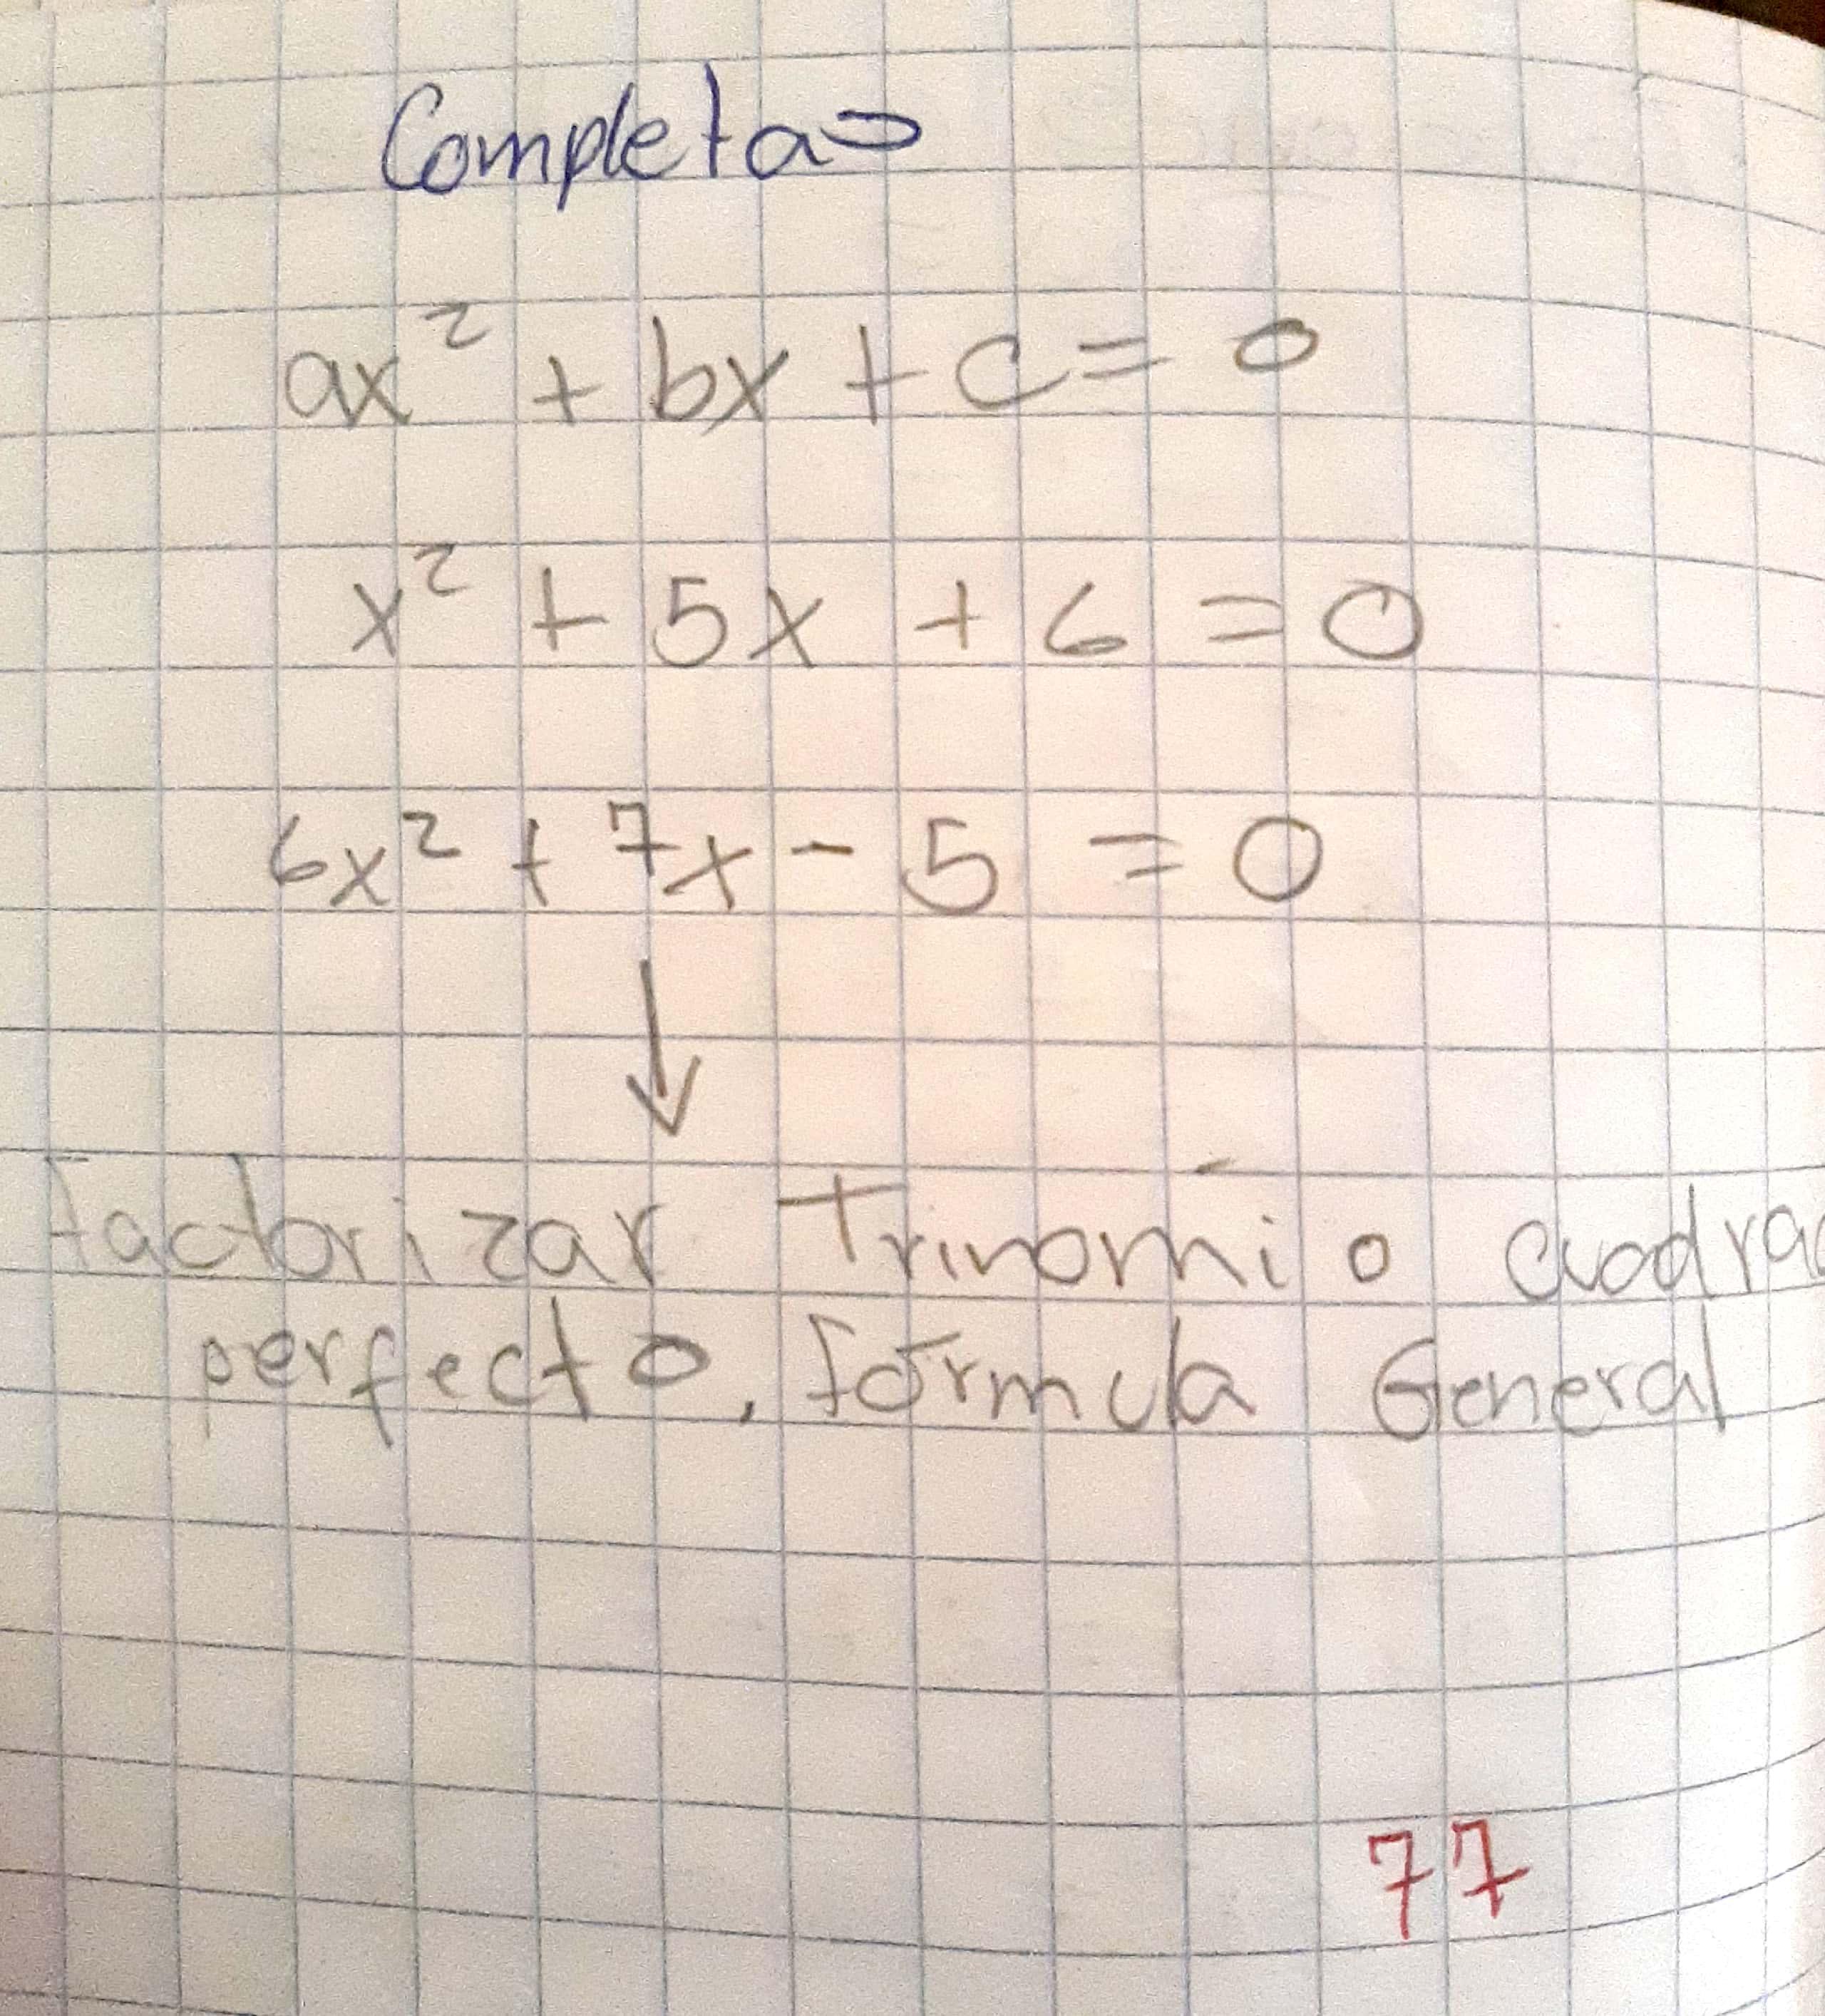 Completa
ax² + bx + c = 0
x² + 5x + 6 = 0
6x² + 7x - 5 = 0
↓
Factorizar Trinomio cuadra
perfecto, fórmula General
77